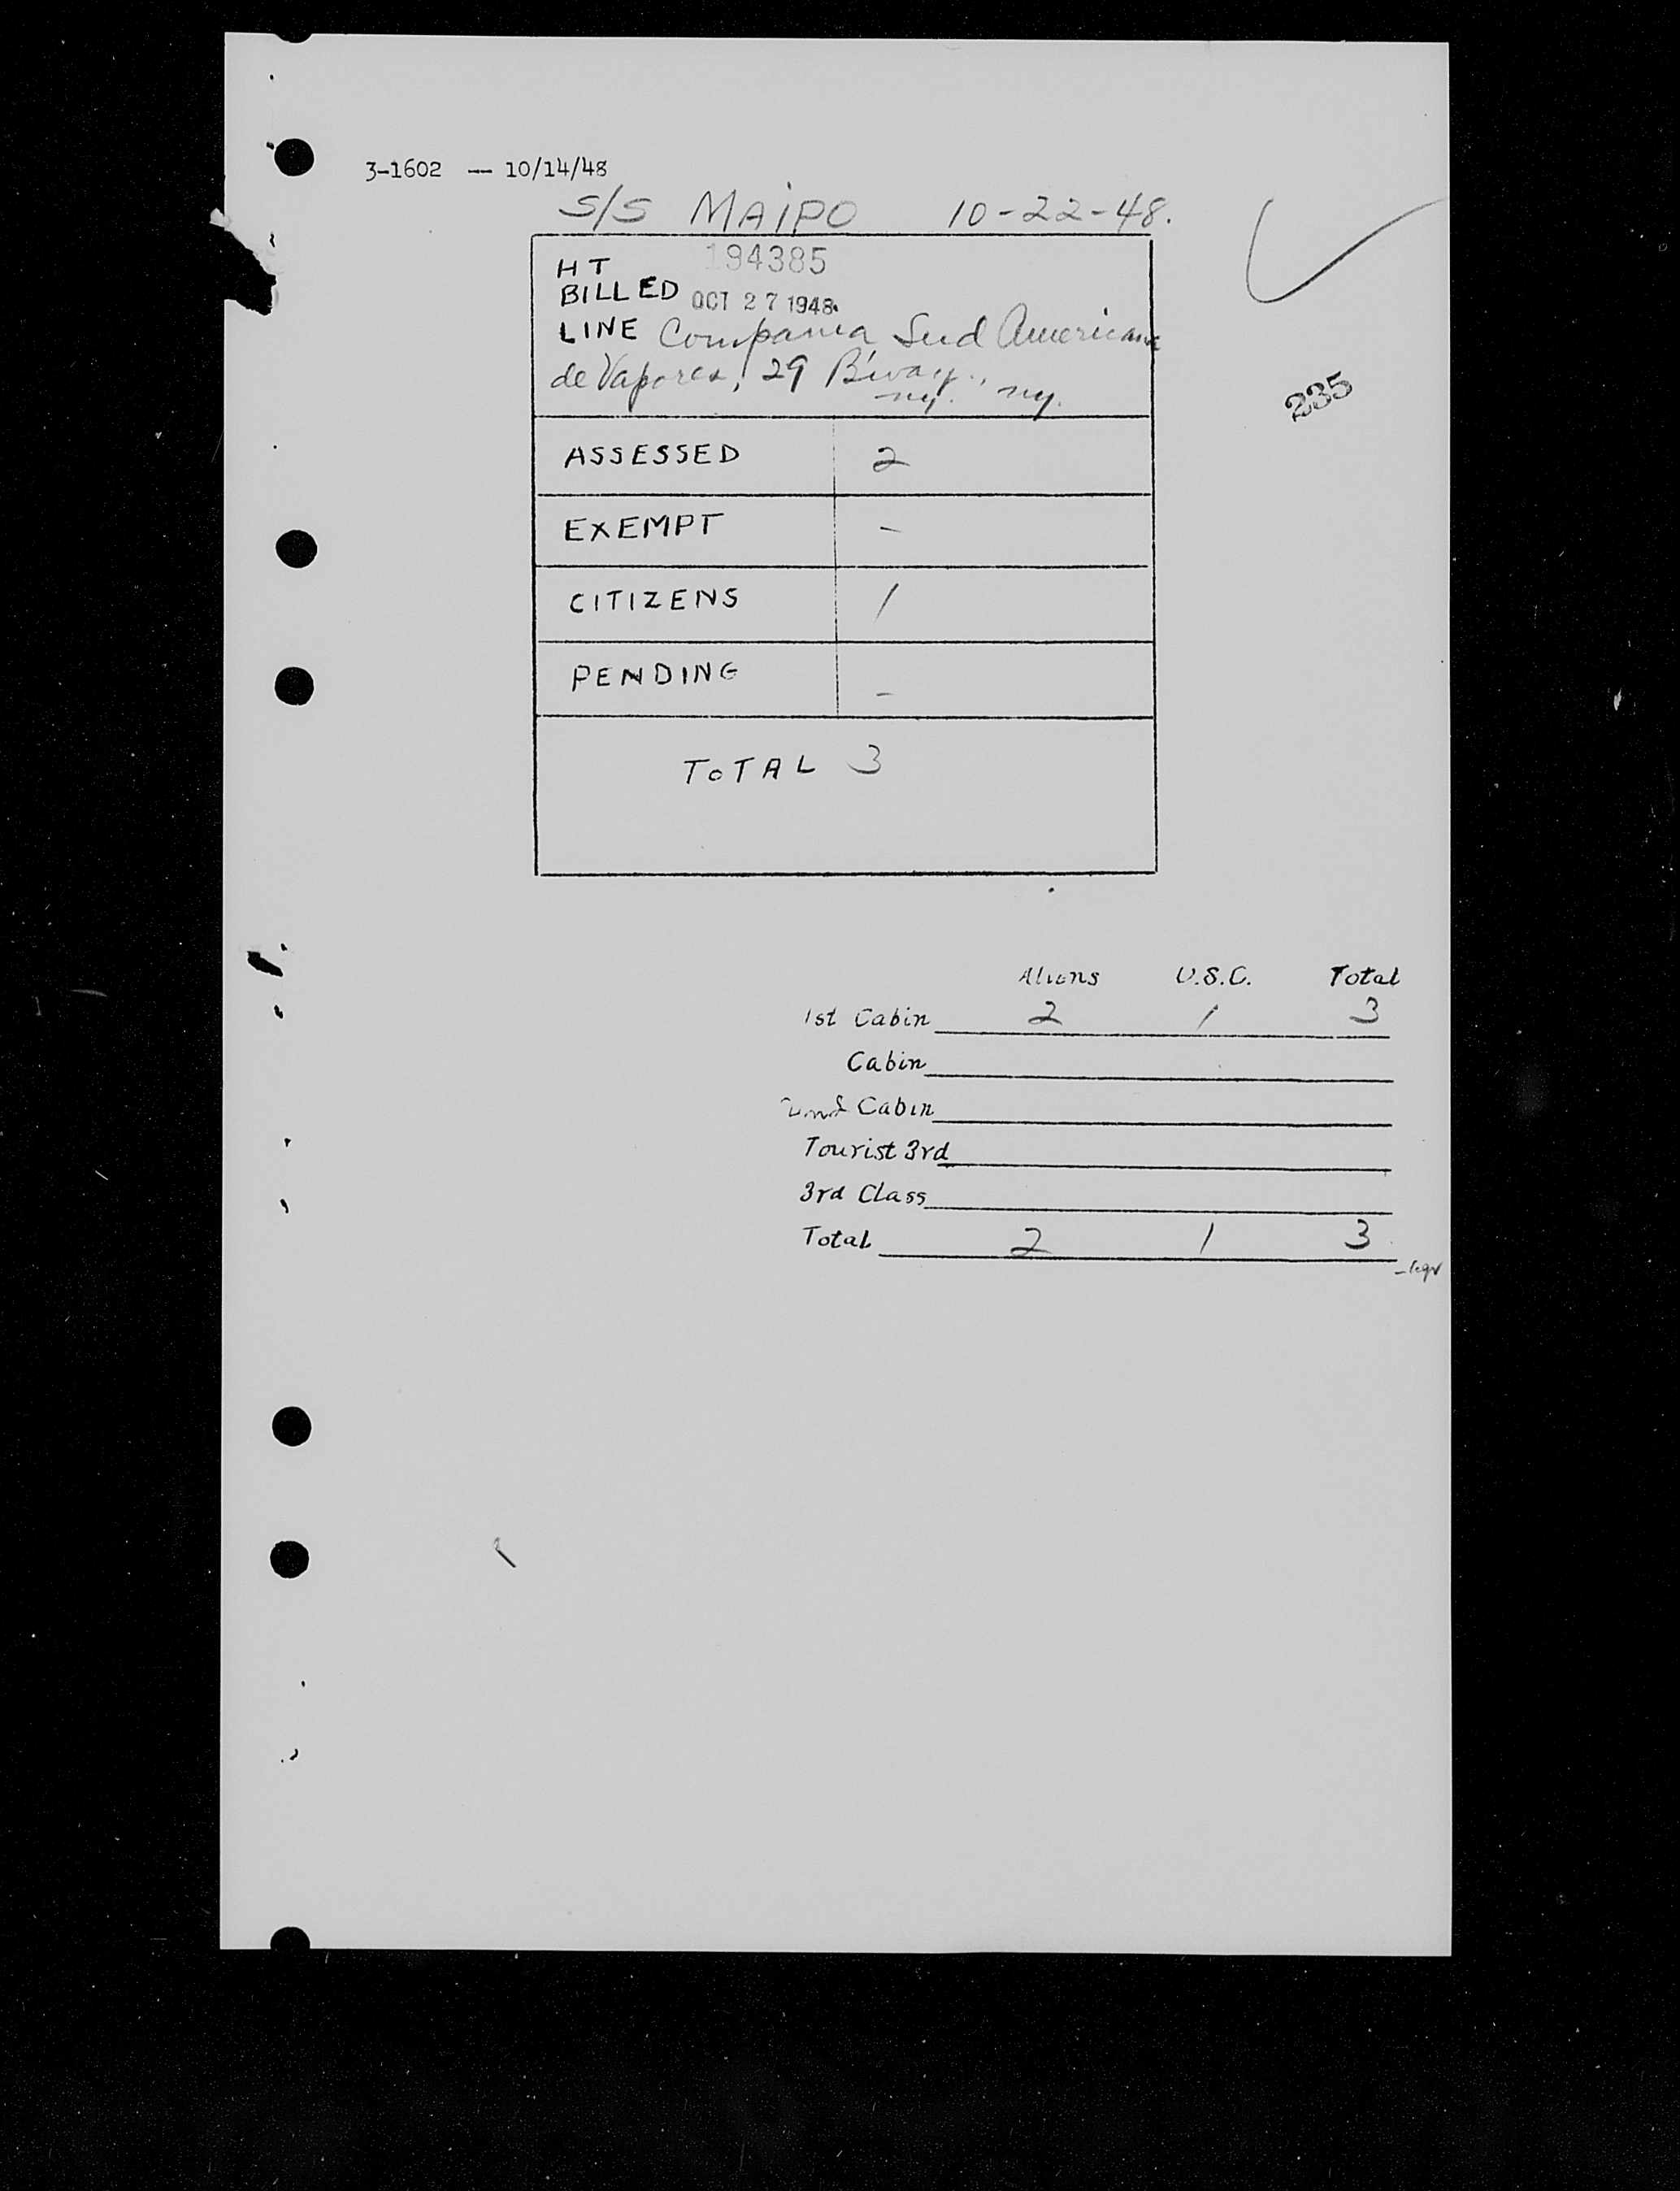 3-1602 -- 10/14/48
S/S MAIPO 10-22-48.
HT 194385
BILLED OCT 27 1948
LINE Compania Sud Americana
de Vapores, 29 B'way.,
ny. ny.
235
ASSESSED 2
EXEMPT -
CITIZENS 1
PENDING -
TOTAL 3
Aliens U.S.C. Total
1st Cabin 2 1 3
Cabin
Cabin
Tourist 3rd
3rd Class
Total 2 1 3